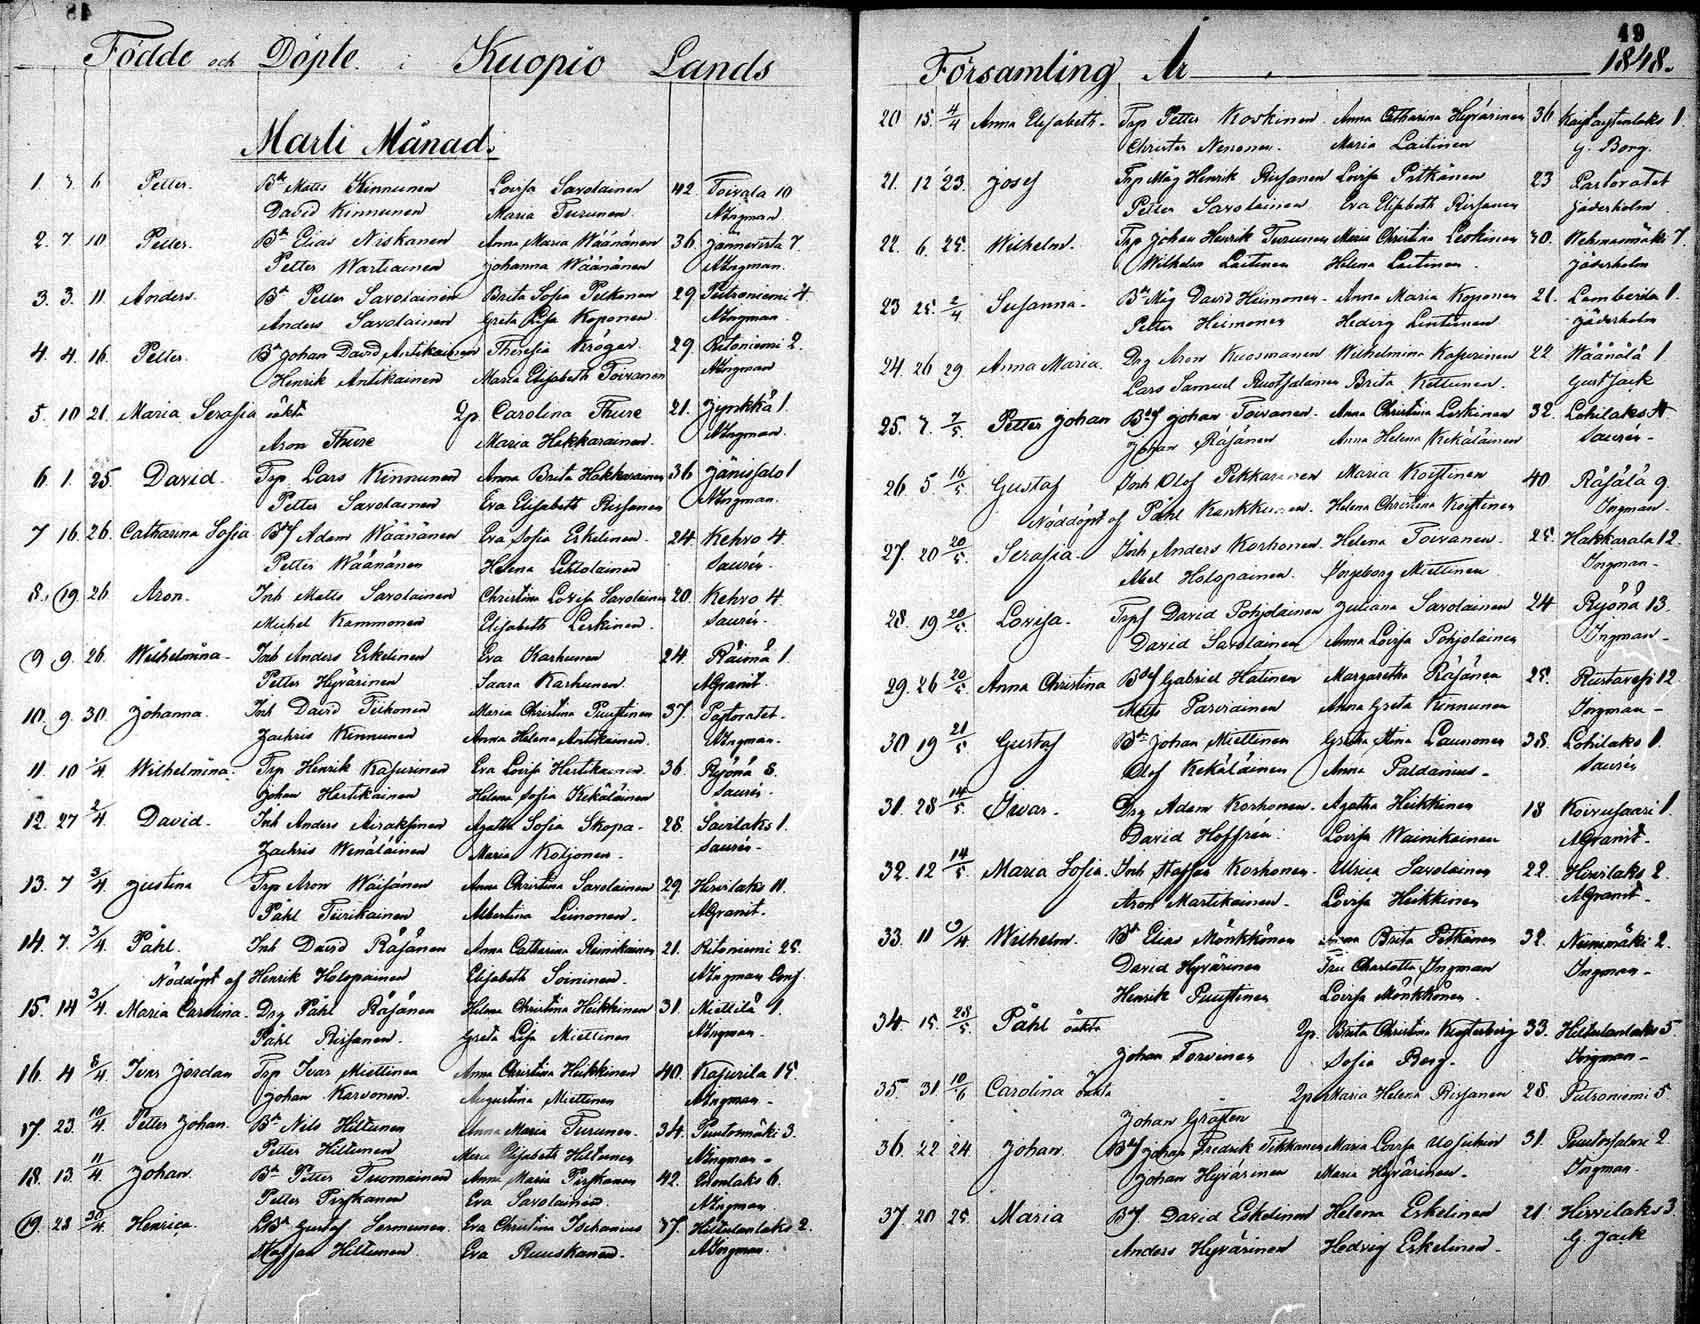 18
Födde och Döpte i Kuopio Lands
Marti Månad.
1. 3. 6 Petter. Bd Matts Kinnunen Lovisa Savolainen 42. Toivala 10
David Kinnunen Maria Turunen. AIngman
2. 7 10 Petter. Bd Elias Niskanen Anna Maria Wäänänen 36. Jännevirta 7.
Petter Wartiainen Johanna Wäänänen AIngman.
3. 3. 11. Anders. Bd Petter Savolainen Brita Sofia Pelkonen 29 Puutroniemi 4
Anders Savolainen Greta Lisa Koponen. AIngman.
4. 4. 16. Petter. Bd Johan David Antikainen Theresia Kröger. 29. Ritoniemi 2.
Henrik Antikainen Maria Elisabeth Toivanen AIngman
5. 10 21. Maria Serafia oäkta Qp. Carolina Thure 21. Jynkkä 1.
Aron Thure Maria Hakkarainen. AIngman
6. 1. 25. David. Trp. Lars Kinnunen Anna Brita Hakkarainen 36 Jänissalo 1
Petter Savolainen Eva Elisabeth Rissanen AIngman.
7 16. 26. Catharina Sofia Bdf Adam Wäänänen Eva Sofia Eskelinen. 24. Kehvo 4.
Petter Wäänänen Helena Lehtolainen Saurén.
8. 19. 26 Aron. Inh Matts Savolainen Christina Lovisa Savolainen 20. Kehvo 4.
Michel Kammonen Elisabeth Leskinen. Saurén.
9 9. 26. Wilhelmina. Inh Anders Eskelinen Eva Karhunen 24. Räimä 1.
Petter Hyvärinen Saara Karhunen. AGranit.
10. 9. 30. Johanna. Inh David Tiikonen Maria Christina Puustinen 37. Pastoratet.
Zachris Kinnunen Anna Helena Antikainen. AIngman.
11. 10 1/4 Wilhelmina. Trp Henrik Kasurinen Eva Lovisa Hartikainen 36. Ryönä 8.
Johan Hartikainen Helena Sofia Kekäläinen Saurén.
12. 27 2/4 David. Inh Anders Airaksinen Agatha Sofia Skopa. 28. Savilaks 1.
Zachris Wenäläinen Maria Koljonen. Saurén.
13. 7 3/4 Justina Trp Aron Wäisänen Anna Christina Savolainen 29. Hirvilaks 11.
Påhl Tiirikainen Albertina Leinonen. AGranit.
14. 7. 3/4. Påhl. Inh David Räsänen Anna Catharina Reinikainen 21. Ritoniemi 25.
Nöddöpt af Henrik Holopainen Elisabeth Soininen. AIngman Conf.
15. 14 3/4. Maria Carolina. Drg Påhl Räsänen Helena Christina Heikkinen 31. Miettilä 1.
Påhl Rissanen. Greta Lisa Miettinen AIngman.
16. 4 8/4. Ivar Jordan Trp Ivar Miettinen Anna Christina Heikkinen 40. Kasurila 15.
Johan Karvonen. Augustina Miettinen AIngman.
17. 23. 10/4 Petter Johan. Bd Nils Hiltunen Anna Maria Turunen. 34. Puutosmäki 3.
Petter Hiltunen Maria Elisabeth Hiltunen AIngman.
18. 13. 11/4 Johan. Bd Petter Tuomainen Anna Maria Pirskanen 42. 6.
Petter Pirskanen Eva Savolainen. AIngman.
19. 28 30/4. Henrica. LBd Gustaf Sormunen. Eva Christina Ischanius 37. Hiltulanlaks 2.
Staffan Hiltunen Eva Ruuskanen. AIngman.
49
Församling År 1848.
20 15. 4/4 Anna Elisabeth. Trp Petter Koskinen Anna Catharina Hyvärinen 36 1.
Christer Nenonen. Maria Laitinen G. Borg.
21. 12 23. Josef Trp Måg Henrik Rissanen Lovisa Pitkänen 23 Pastoratet
Petter Savolainen Eva Elisabeth Rissanen Jäderholm
22. 6. 25. Wilhelm. Trp Johan Henrik Turunen Maria Christina Leskinen 40. Wehmasmäki 7.
Wilhelm Laitinen Helena Laitinen. Jäderholm
23 25. 2/4 Susanna. Bd Måg David Heimonen. Anna Maria Koponen 21. Lamberila 1.
Petter Heimonen Hedvig Lintunen. Jäderholm
24. 26 29. Anna Maria. Drg Aron Kuosmanen Wilhelmina Kasurinen 22 Wäänälä 1
Lars Samuel Ruotsalainen Brita Kettunen. Gust Jack
25. 7. 7/5. Petter Johan Bdf Johan Toivanen. Anna Christina Leskinen 32. Lohilaks
Johan Räsänen Anna Helena Kekäläinen Saurén.
26. 5 16/5 Gustaf Inh Olof Pekkarinen Maria Koistinen 40 Räsälä 9
Nöddöpt af Påhl Kankkunen. Helena Christina Koistinen Ingman.
27. 20 20/5. Serafia. Inh Anders Korhonen. Helena Toivanen. 25. Hakkarala 12.
Abel Holopainen. Ingeborg Miettinen Ingman.
28. 19 20/5. Lovisa. Trpf David Pohjolainen Juliana Savolainen 24 Ryönä 13.
David Savolainen Anna Lovisa Pohjolainen Ingman.
29. 26 20/5. Anna Christina Bdf Gabriel Hätinen Margaretha Räsänen 25. Rutavesi 12
Matts Parviainen Anna Greta Kinnunen Ingman.
30 19 21/5 Gustaf Bd Johan Miettinen Gretha Stina Launonen 38. Lohilaks 1.
Olof Kekäläinen Anna Paldanius. Saurén
31. 28 14/5 Ivar. Drg Adam Korhonen. Agatha Heikkinen 18 Koivusaari 1.
David Hoffrén. Lovisa Wainikainen AGranit.
32. 12 14/5. Maria Sofia. Inh Staffan Korhonen. Ulrica Savolainen 22. Hirvilaks 2.
Aron Martikainen. Lovisa Heikkinen AGranit.
33. 11 9/4 Wilhelm. Bd Elias Mönkkönen Anna Brita Pitkänen 32. Nunnmäki 2.
David Hyvärinen Fru Charlotta Ingman Ingman.
Henrik Puustinen Lovisa Mönkkönen.
34. 15. 28/5. Påhl oäkta Qp. Brita Christina 33. Hiltulanlaks 5
Johan Torvinen Sofia Berg. Ingman.
35. 31. 10/6 Carolina oäkta Qp Maria Helena Rissanen 28. Putroniemi 5
Johan Gråsten
36. 22 24 Johan. Bdf Johan Fredrik Tikkanen Maria Lovisa 31. Puutossalmi 2
Johan Hyvärinen Maria Hyvärinen. Ingman.
37. 20 25. Maria Bdf. David Eskelinen Helena Eskelinen 21 Hirvilaks 3
Anders Hyvärinen Hedvig Eskelinen. G. Jack